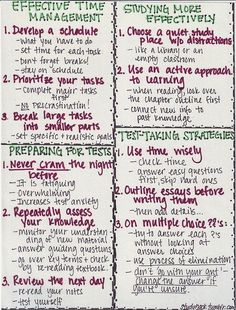 EFFECTIVE TIME
MANAGEMENT
1. Develop a schedule
- what you have to do
- set time for each task
- Don't forget breaks!
- stay on schedule
2. Prioritize your tasks
- Complete major
tasks first
- NO PROCRASINATION!
3. Break large tasks
into smaller parts
- set specific & realistic goals
STUDYING MORE
EFFECTIVELY
1. Choose a quiet study
place w/o distractions
- like a library or an
empty classroom
2. Use an active approach
to learning
- when reading, look over
the chapter outline first
- connect new info to
past knowledge.
PREPARING FOR TESTS
1. Never cram the night
before
- It is fatiguing
- overwhelming
- Increases test anxiety
2. Repeatedly assess
your knowledge
- monitor your understan
ding of new material
- answer guiding questions
- go over key terms & check
by re-reading textbook.
3. Review the next day
- re-read your notes
- test yourself
TEST-TAKING STRATEGIES
1. Use time wisely
- check time
- answer easy questions
first, skip hard ones
2. Outline essays before
writing them
- then add details...
3. On multiple choice ??'s:
- try to answer each ?'s
without looking at
answer choices
- use process of elimination
- don't go with your gut -
change the answer if
you're unsure.